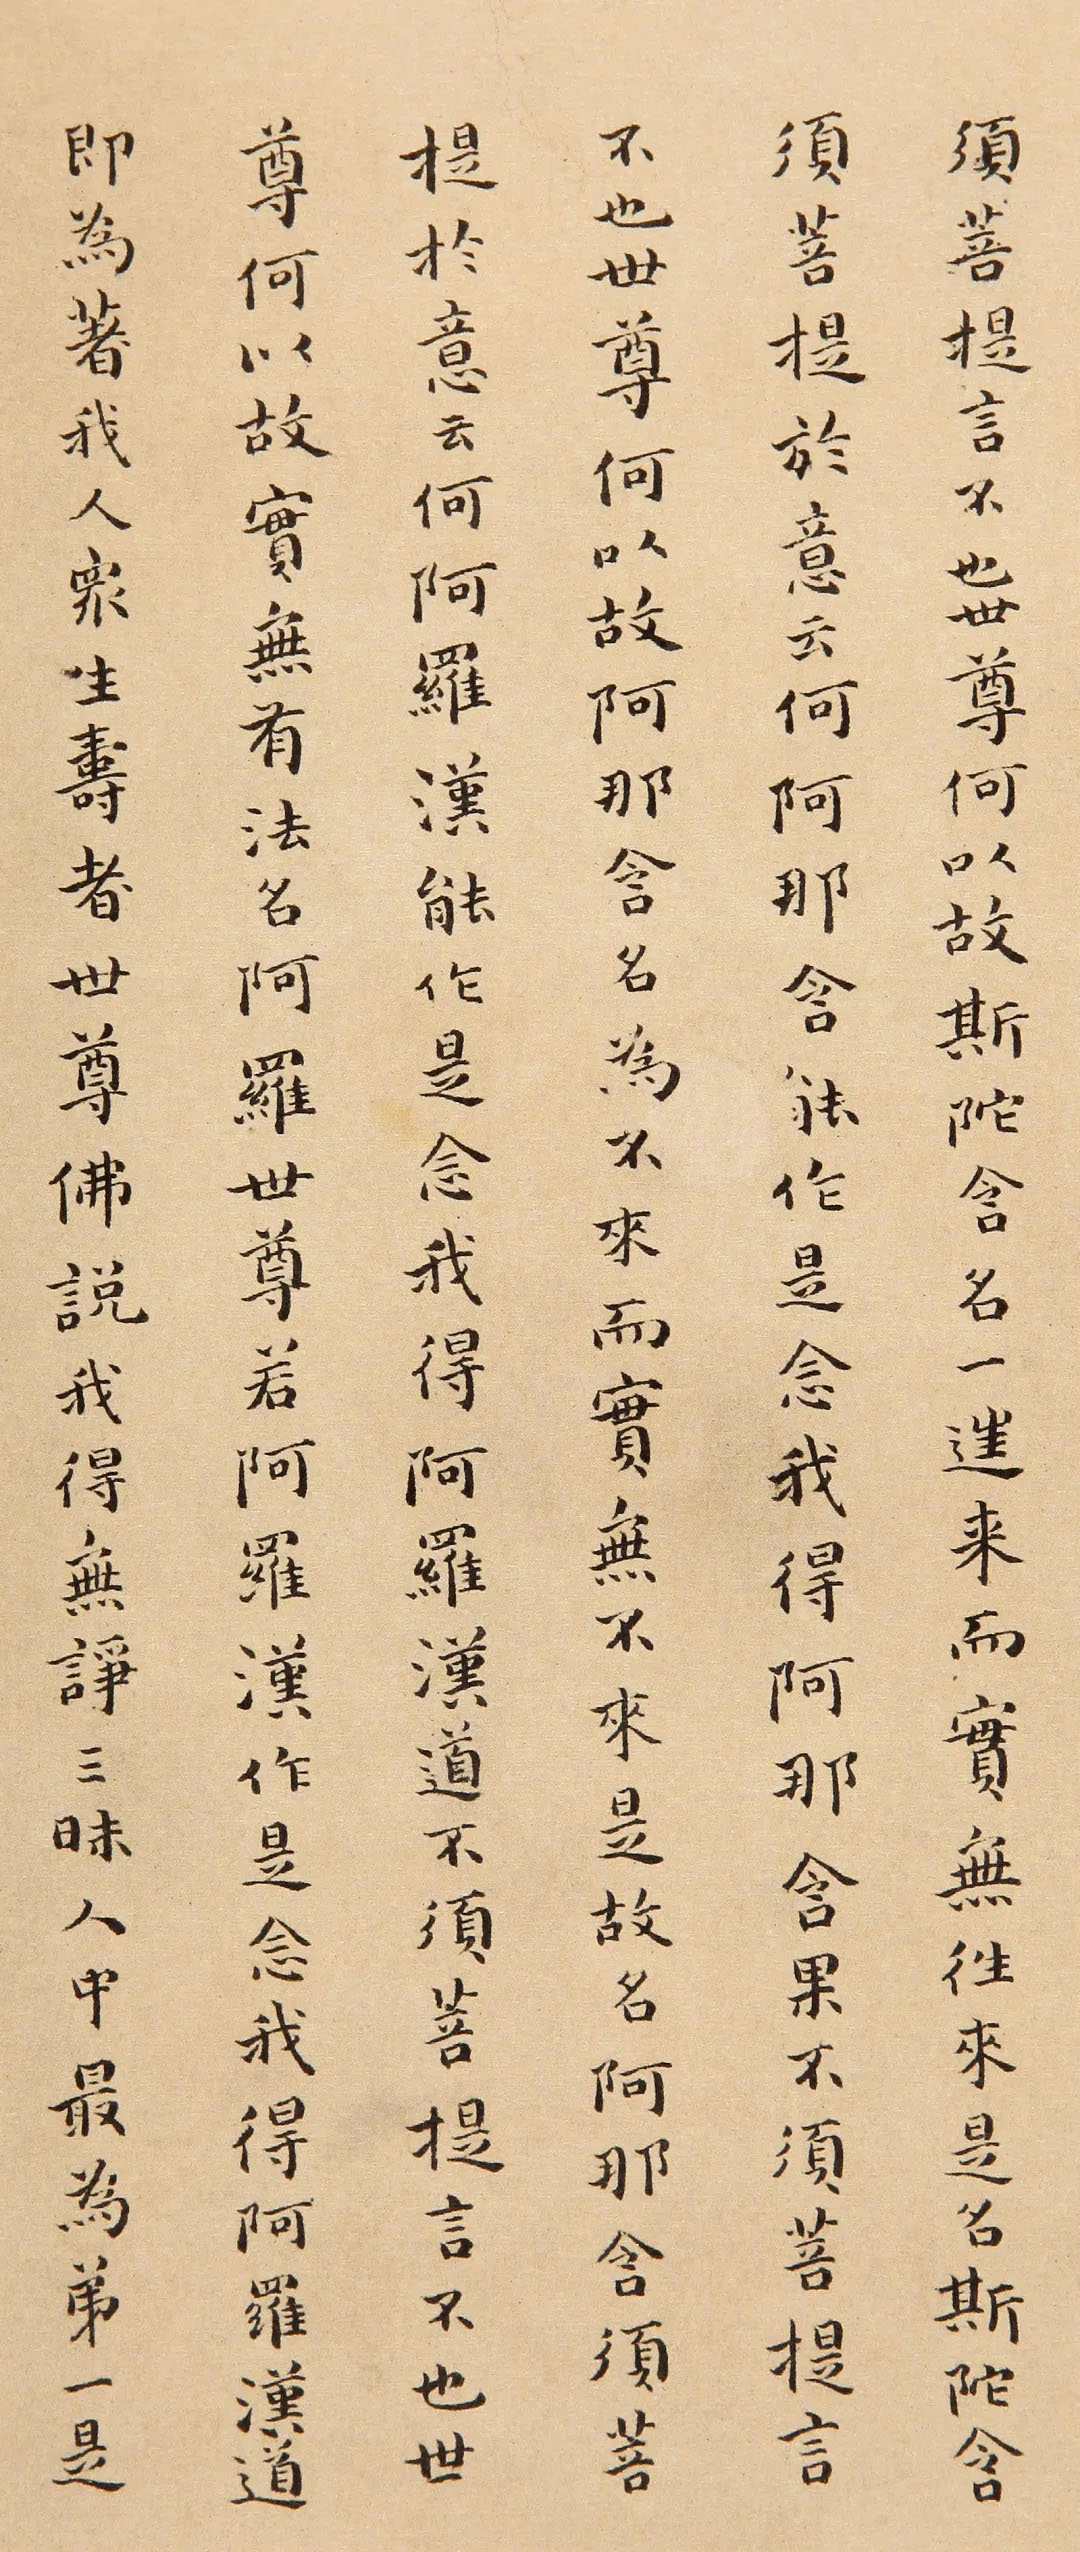 須菩提言不也世尊何以故斯陀含名一進来而實無往來是名斯陀含
須菩提於意云何阿那含能作是念我得阿那含果不須菩提言
不也世尊何以故阿那含名為不來而實無不來是故名阿那含須菩
提於意云何阿羅漢能作是念我得阿羅漢道不須菩提言不也世
尊何以故實無有法名阿羅世尊若阿羅漢作是念我得阿羅漢道
即為著我人眾生壽者世尊佛説我得無諍三昧人中最為第一是